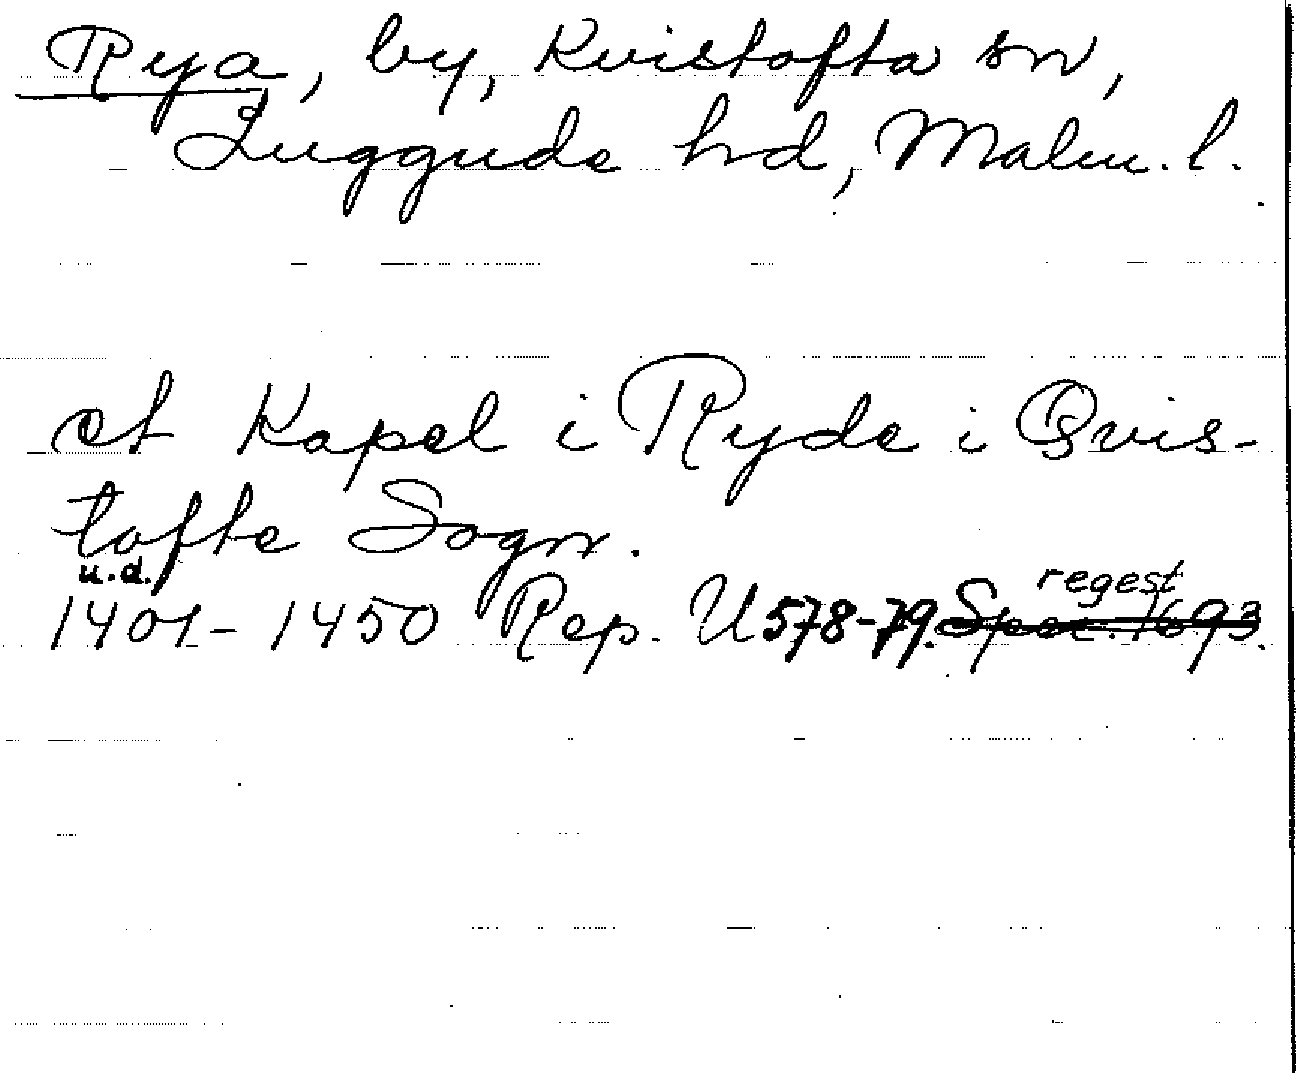 Rya, by, Kvistofta sn,
Luggude hd, Malm. l.
et Kapel i Ryde i Qvis-
tofte Sogn.
u.d.
1401-1450 Rep. U 578-79. Spec. 1693.
regest